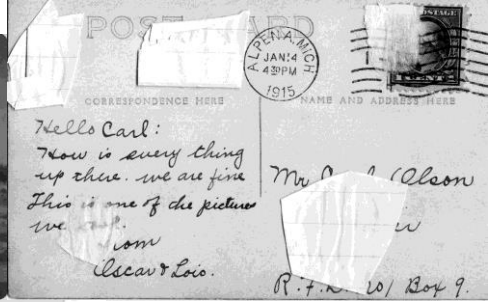 POST CARD
ALPENA, MICH
JAN 14
4 30 PM
1915
POSTAGE
CENTS
CORRESPONDENCE HERE
NAME AND ADDRESS HERE
Hello Carl:
How is every thing
up there. we are fine
This is one of the pictures
we
Oscar & Lois.
Mr Olson
R.F.D. Box 9.